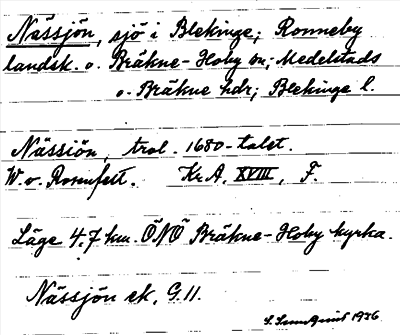 Nässjön, sjö i Blekinge; Ronneby
landsk. o. Bräkne-Hoby sn; Medelstads
o. Bräkne hdr; Blekinge l.
Nässiön, trol. 1680-talet.
W. v. Rosenfest. Kr.A. XVIII, F.
Läge 4,7 km. ÖNÖ Bräkne-Hoby kyrka.
Nässjön ek. G.11.
1936